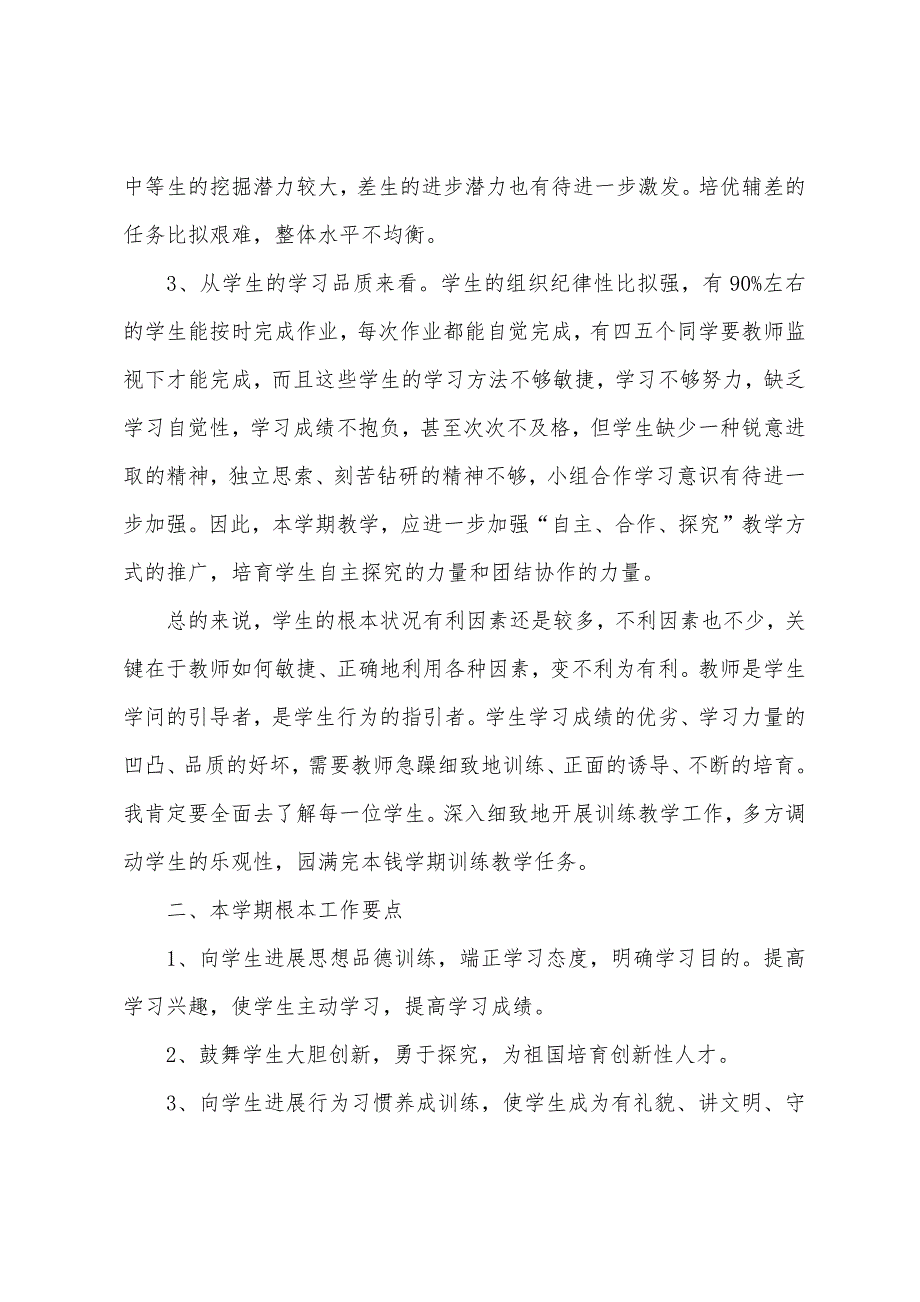 中等生的挖掘潜力较大，差生的进步潜力也有待进一步激发。培优辅差的
任务比拟艰难，整体水平不均衡。
3、从学生的学习品质来看。学生的组织纪律性比拟强，有 90%左右
的学生能按时完成作业，每次作业都能自觉完成，有四五个同学要教师监
视下才能完成，而且这些学生的学习方法不够敏捷，学习不够努力，缺乏
学习自觉性，学习成绩不抱负，甚至次次不及格，但学生缺少一种锐意进
取的精神，独立思索、刻苦钻研的精神不够，小组合作学习意识有待进一
步加强。因此，本学期教学，应进一步加强“自主、合作、探究”教学方
式的推广，培育学生自主探究的力量和团结协作的力量。
总的来说，学生的根本状况有利因素还是较多，不利因素也不少，关
键在于教师如何敏捷、正确地利用各种因素，变不利为有利。教师是学生
学问的引导者，是学生行为的指引者。学生学习成绩的优劣、学习力量的
凹凸、品质的好坏，需要教师急躁细致地训练、正面的诱导、不断的培育。
我肯定要全面去了解每一位学生。深入细致地开展训练教学工作，多方调
动学生的乐观性，园满完本钱学期训练教学任务。
二、本学期根本工作要点
1、向学生进展思想品德训练，端正学习态度，明确学习目的。提高
学习兴趣，使学生主动学习，提高学习成绩。
2、鼓舞学生大胆创新，勇于探究，为祖国培育创新性人才。
3、向学生进展行为习惯养成训练，使学生成为有礼貌、讲文明、守